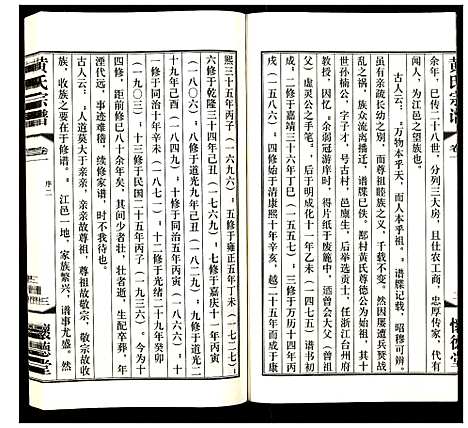 黄氏宗谱
卷一
懷德堂
余年，已传二十八世，分列三大房，且仕农工商，忠厚传家，代有
闻人，为江邑之望族也。
古人云：“万物本乎天，而人本乎祖。”谱牒记载，昭穆可辨。
虽有亲疏长幼之分，然因尊祖睦族之义，千载不逾。然因屡遭兵燹战
乱之祸，族众流离播迁，谱牒已佚。鄢村黄氏尊德公为始祖，其
世孙楠公，字子才，号古村，邑廪生，后举选贡士，任浙江台州府
教授，因忆“余弱冠游庠时，得片纸于废簏中，迺曾会大父（曾祖
父）虚灵公之手笔。”，后于明成化十一年乙未（一四七五）谱书初
成，二修于嘉靖三十六年丁巳（一五五七），三修于万历十四年丙
戌（一五八六），四修始于清康熙十年辛亥，越二十五年而成于康
黄氏宗谱
卷一
序二
懷德堂
熙三十五年丙子（一六九六），五修于雍正五年丁未（一七二七），
六修于乾隆三十四年己丑（一七六九），七修于嘉庆十一年丙寅
（一八〇六），八修于道光九年己丑（一八二九），九修于道光二
十九年己酉（一八四九），十修于同治五年丙寅（一八六六），十
一修于同治十年辛未（一八七一），十二修于光绪二十九年癸卯
（一九〇三），十三修于民国二十五年丙子（一九三六）。今为十
四修，距前修已八十余年矣，其间少者壮，壮者逝，生配卒葬，年
湮代远，事迹难稽，续修家谱，时不我待也。
古人云：“人道莫大于亲亲，亲亲故尊祖，尊祖故敬宗，敬宗故收
族，收族之要在于修谱。”江邑一地，家族繁兴，谱事尤盛。然